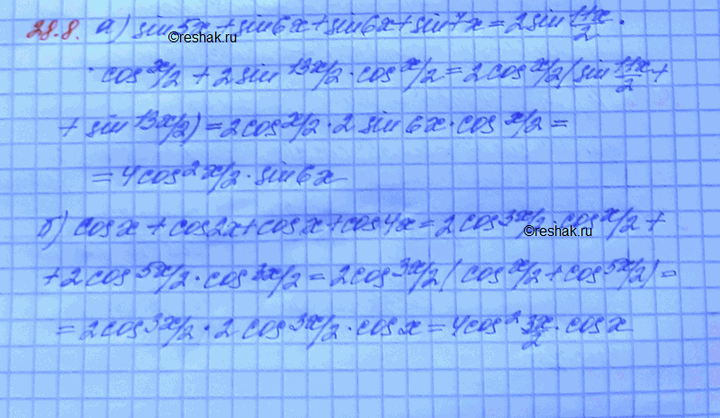 28.8. а) sin5x + sin6x + sin6x + sin7x = 2sin 11x/2 ·
©reshak.ru
· cos x/2 + 2sin 13x/2 · cos x/2 = 2cos x/2 (sin 11x/2 +
+ sin 13x/2) = 2cos x/2 · 2 sin 6x · cos x/2 =
= 4cos² x/2 · sin6x
б) cosx + cos2x + cosx + cos4x = 2cos 3x/2 · cos x/2 +
©reshak.ru
+ 2cos 5x/2 · cos 3x/2 = 2cos 3x/2 (cos x/2 + cos 5x/2) =
= 2cos 3x/2 · 2 cos 3x/2 · cosx = 4cos² 3x/2 · cosx